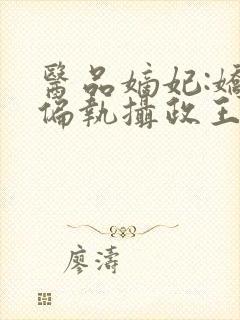 醫品嫡妃:嬌
偏執攝政王
廖濤